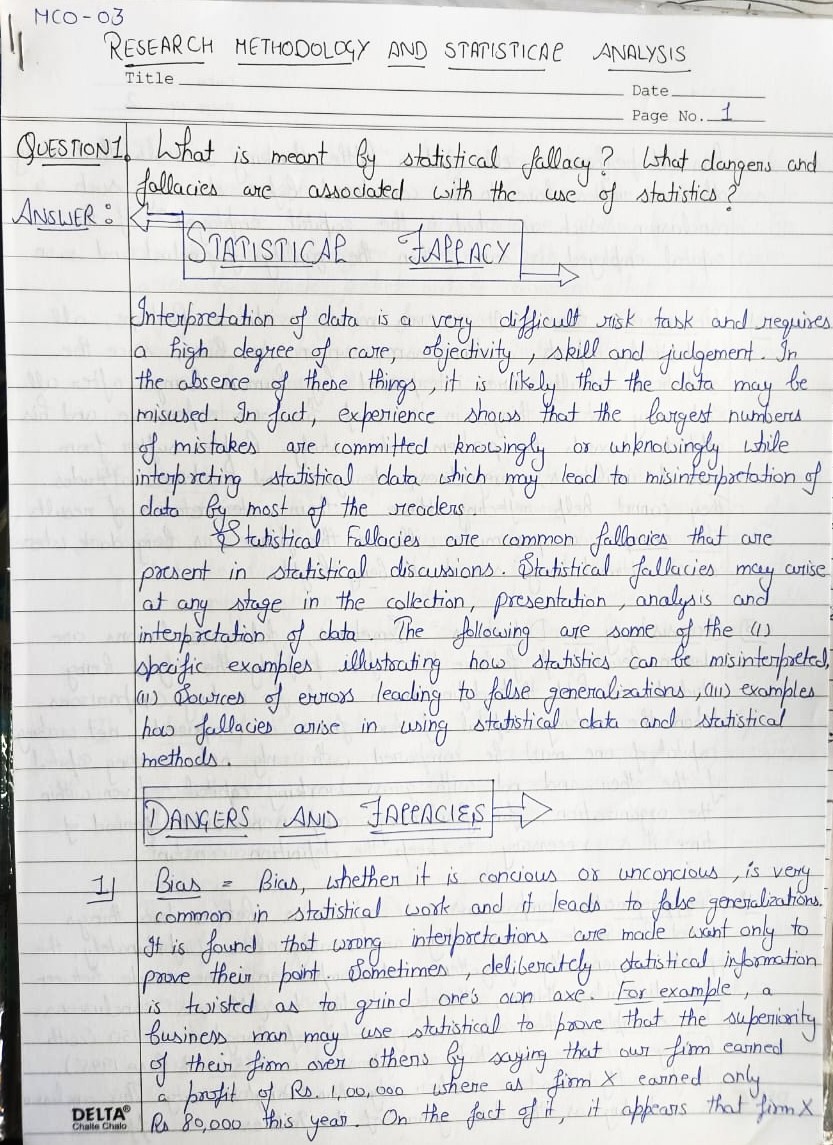 MCO-03
RESEARCH METHODOLOGY AND STATISTICAL ANALYSIS
Title
Date
Page No. 1
QUESTION 1. What is meant by statistical fallacy? What dangers and
fallacies are associated with the use of statistics?
ANSWER:
STATISTICAL FALLACY
Interpretation of data is a very difficult risk task and requires
a high degree of care, objectivity, skill and judgement. In
the absence of these things, it is likely that the data may be
misused. In fact, experience shows that the largest numbers
of mistakes are committed knowingly or unknowingly while
interpreting statistical data which may lead to misinterpretation of
data by most of the readers.
Statistical Fallacies are common fallacies that are
present in statistical discussions. Statistical fallacies may arise
at any stage in the collection, presentation, analysis and
interpretation of data. The following are some of the (I)
specific examples illustrating how statistics can be misinterpreted,
(II) Sources of errors leading to false generalizations, (III) examples
how fallacies arise in using statistical data and statistical
methods.
DANGERS AND FALLACIES
1) Bias = Bias, whether it is concious or unconcious, is very
common in statistical work and it leads to false generalizations.
It is found that wrong interpretations are made want only to
prove their point. Sometimes, deliberately statistical information
is twisted as to grind one's own axe. For example, a
business man may use statistical to prove that the superiority
of their firm over others by saying that our firm earned
a profit of Rs. 1,00,000 where as firm X earned only
Rs 80,000 this year. On the fact of it, it appears that firm X
DELTA®
Challe Chalo